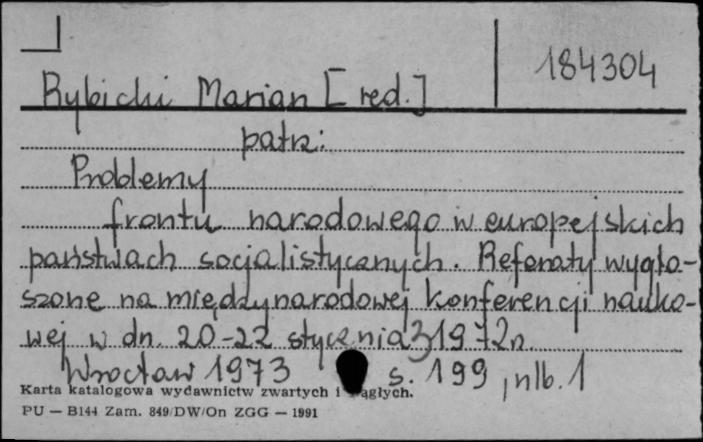 184304
Rybicki Marian [red.]
patrz:
Problemy
frontu narodowego w europejskich
państwach socjalistycznych. Referaty wygło-
szone na międzynarodowej konferencji nauko-
wej w dn. 20-22 stycznia 1972r.
Wrocław 1973 s. 199, nlb. 1
Karta katalogowa wydawnictw zwartych i ciągłych.
PU — B144 Zam. 849/DW/On ZGG — 1991